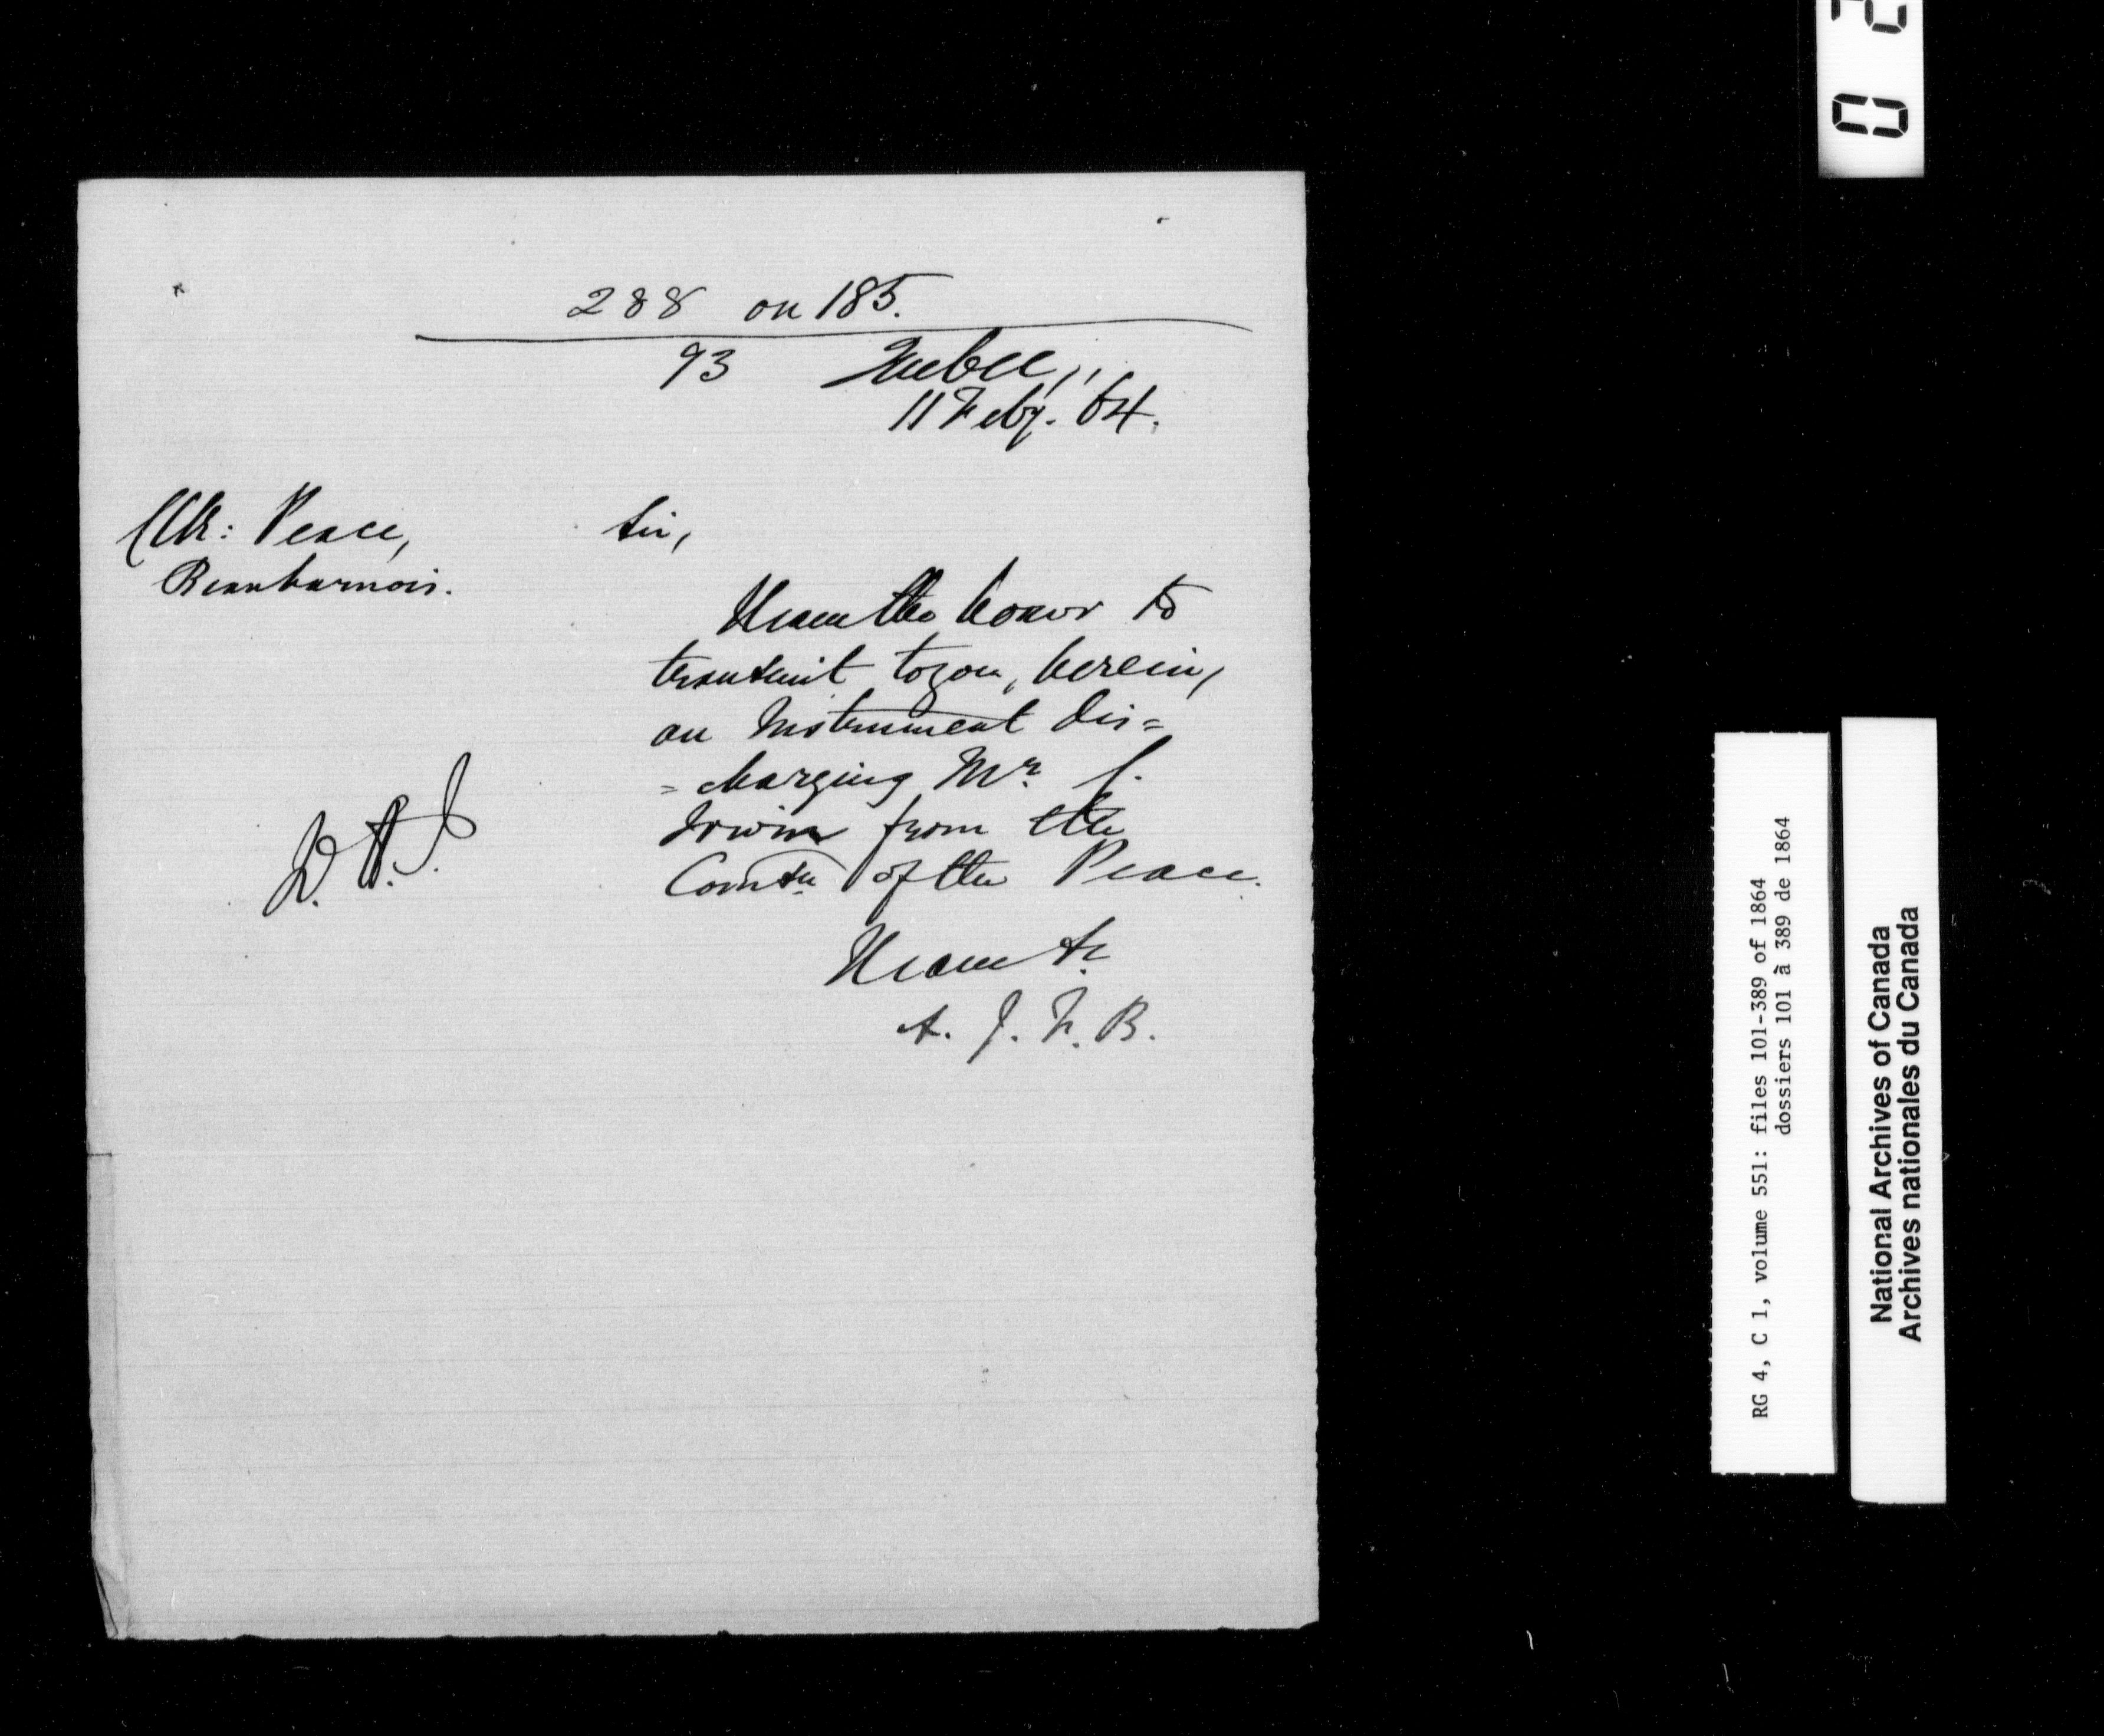 288 on 185.
93 Quebec,
11 Feby. 64.
Clk: Peace,
Beauharnois.
Sir,
I have the honor to
transmit to you, herein,
an Instrument dis=
=charging Mr. J.
Irwin from the
Comsn of the Peace.
I have &c
A. J. F. B.
RG 4, C 1, volume 551: files 101-389 of 1864
dossiers 101 à 389 de 1864
National Archives of Canada
Archives nationales du Canada